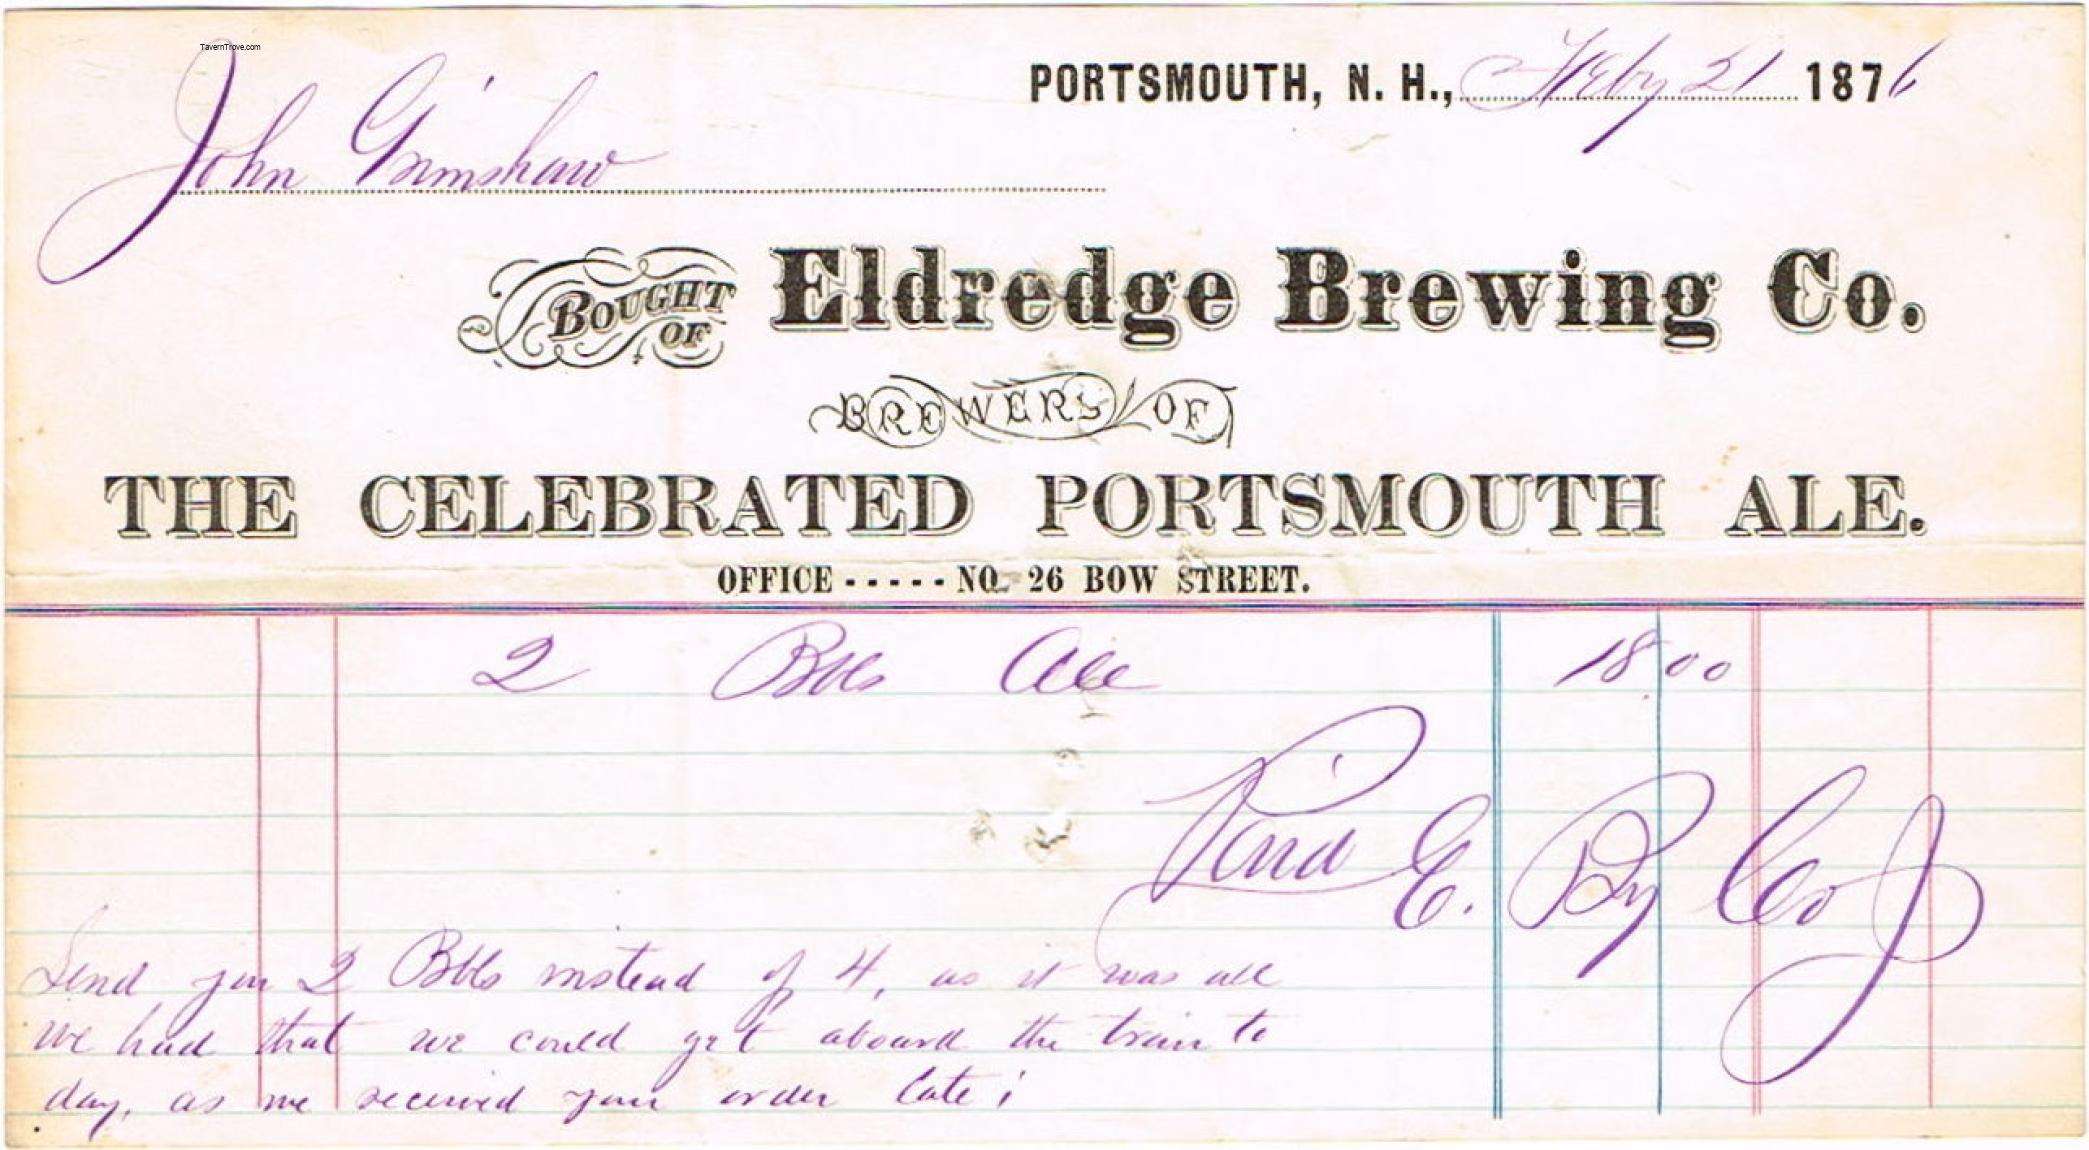 TavernTrove.com
PORTSMOUTH, N. H., Feby 21 1876
John Grimshaw
BOUGHT OF Eldredge Brewing Co.
BREWERS OF
THE CELEBRATED PORTSMOUTH ALE.
OFFICE - - - - - NO. 26 BOW STREET.
2 Bbls Ale 18 00
Paid E. By Co
Send you 2 Bbls instead of 4, as it was all
we had that we could get aboard the train to
day, as we received your order late;